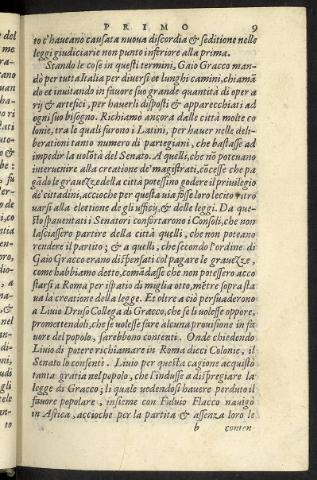 PRIMO 9
to c'haueano causata nuoua discordia & seditione nelle
leggi giudiciarie non punto inferiore alla prima.
Stando le cose in questi termini, Gaio Gracco man-
dò per tutta Italia per diuersi et lunghi camini, chiamā
do et inuitando in fauore suo grande quantità di opera
rij & artefici, per hauerli disposti & apparecchiati ad
ogni suo bisogno. Richiamò ancora dalle città molte co
lonie, tra le quali furono i Latini, per hauer nelle deli-
berationi tanto numero di partegiani, che bastasse ad
impedir la uolōtà del Senato. A quelli, che nō poteano
interuenire alla creatione de' magistrati, cōcesse che pa
gādo le grauezze della città potessino godere il priuilegio
de' cittadini, acciocche per questa uia fosse loro lecito ritro
uarsi alla elettione de gli ufficij, & delle leggi. Da que-
sto spauentati i Senatori confortarono i Consoli, che non
lasciassero partire della città quelli, che non poteano
rendere il partito; & a quelli, che secondo l'ordine di
Gaio Gracco erano dispensati col pagare le grauezze,
come habbiamo detto, comādasse che non potessero acco
starsi a Roma per ispatio di miglia otto, mētre sopra sta
ua la creatione della legge. Et oltre a ciò persuaderono
a Liuio Druso Collega di Gracco, che se li uolesse oppore,
promettendoli, che se uolesse fare alcuna prouisione in fa
uore del popolo, sarebbono contenti. Onde chiedendo
Liuio di potere richiamare in Roma dieci Colonie, il
Senato lo consentì. Liuio per questa cagione acquistò
tanta gratia nel popolo, che l'indusse a dispregiare la
legge di Gracco; il quale uedendosi hauere perduto il
fauore popolare, insieme con Fuluio Flacco nauigò
in Africa, acciocche per la partita & assenza loro le
b conten